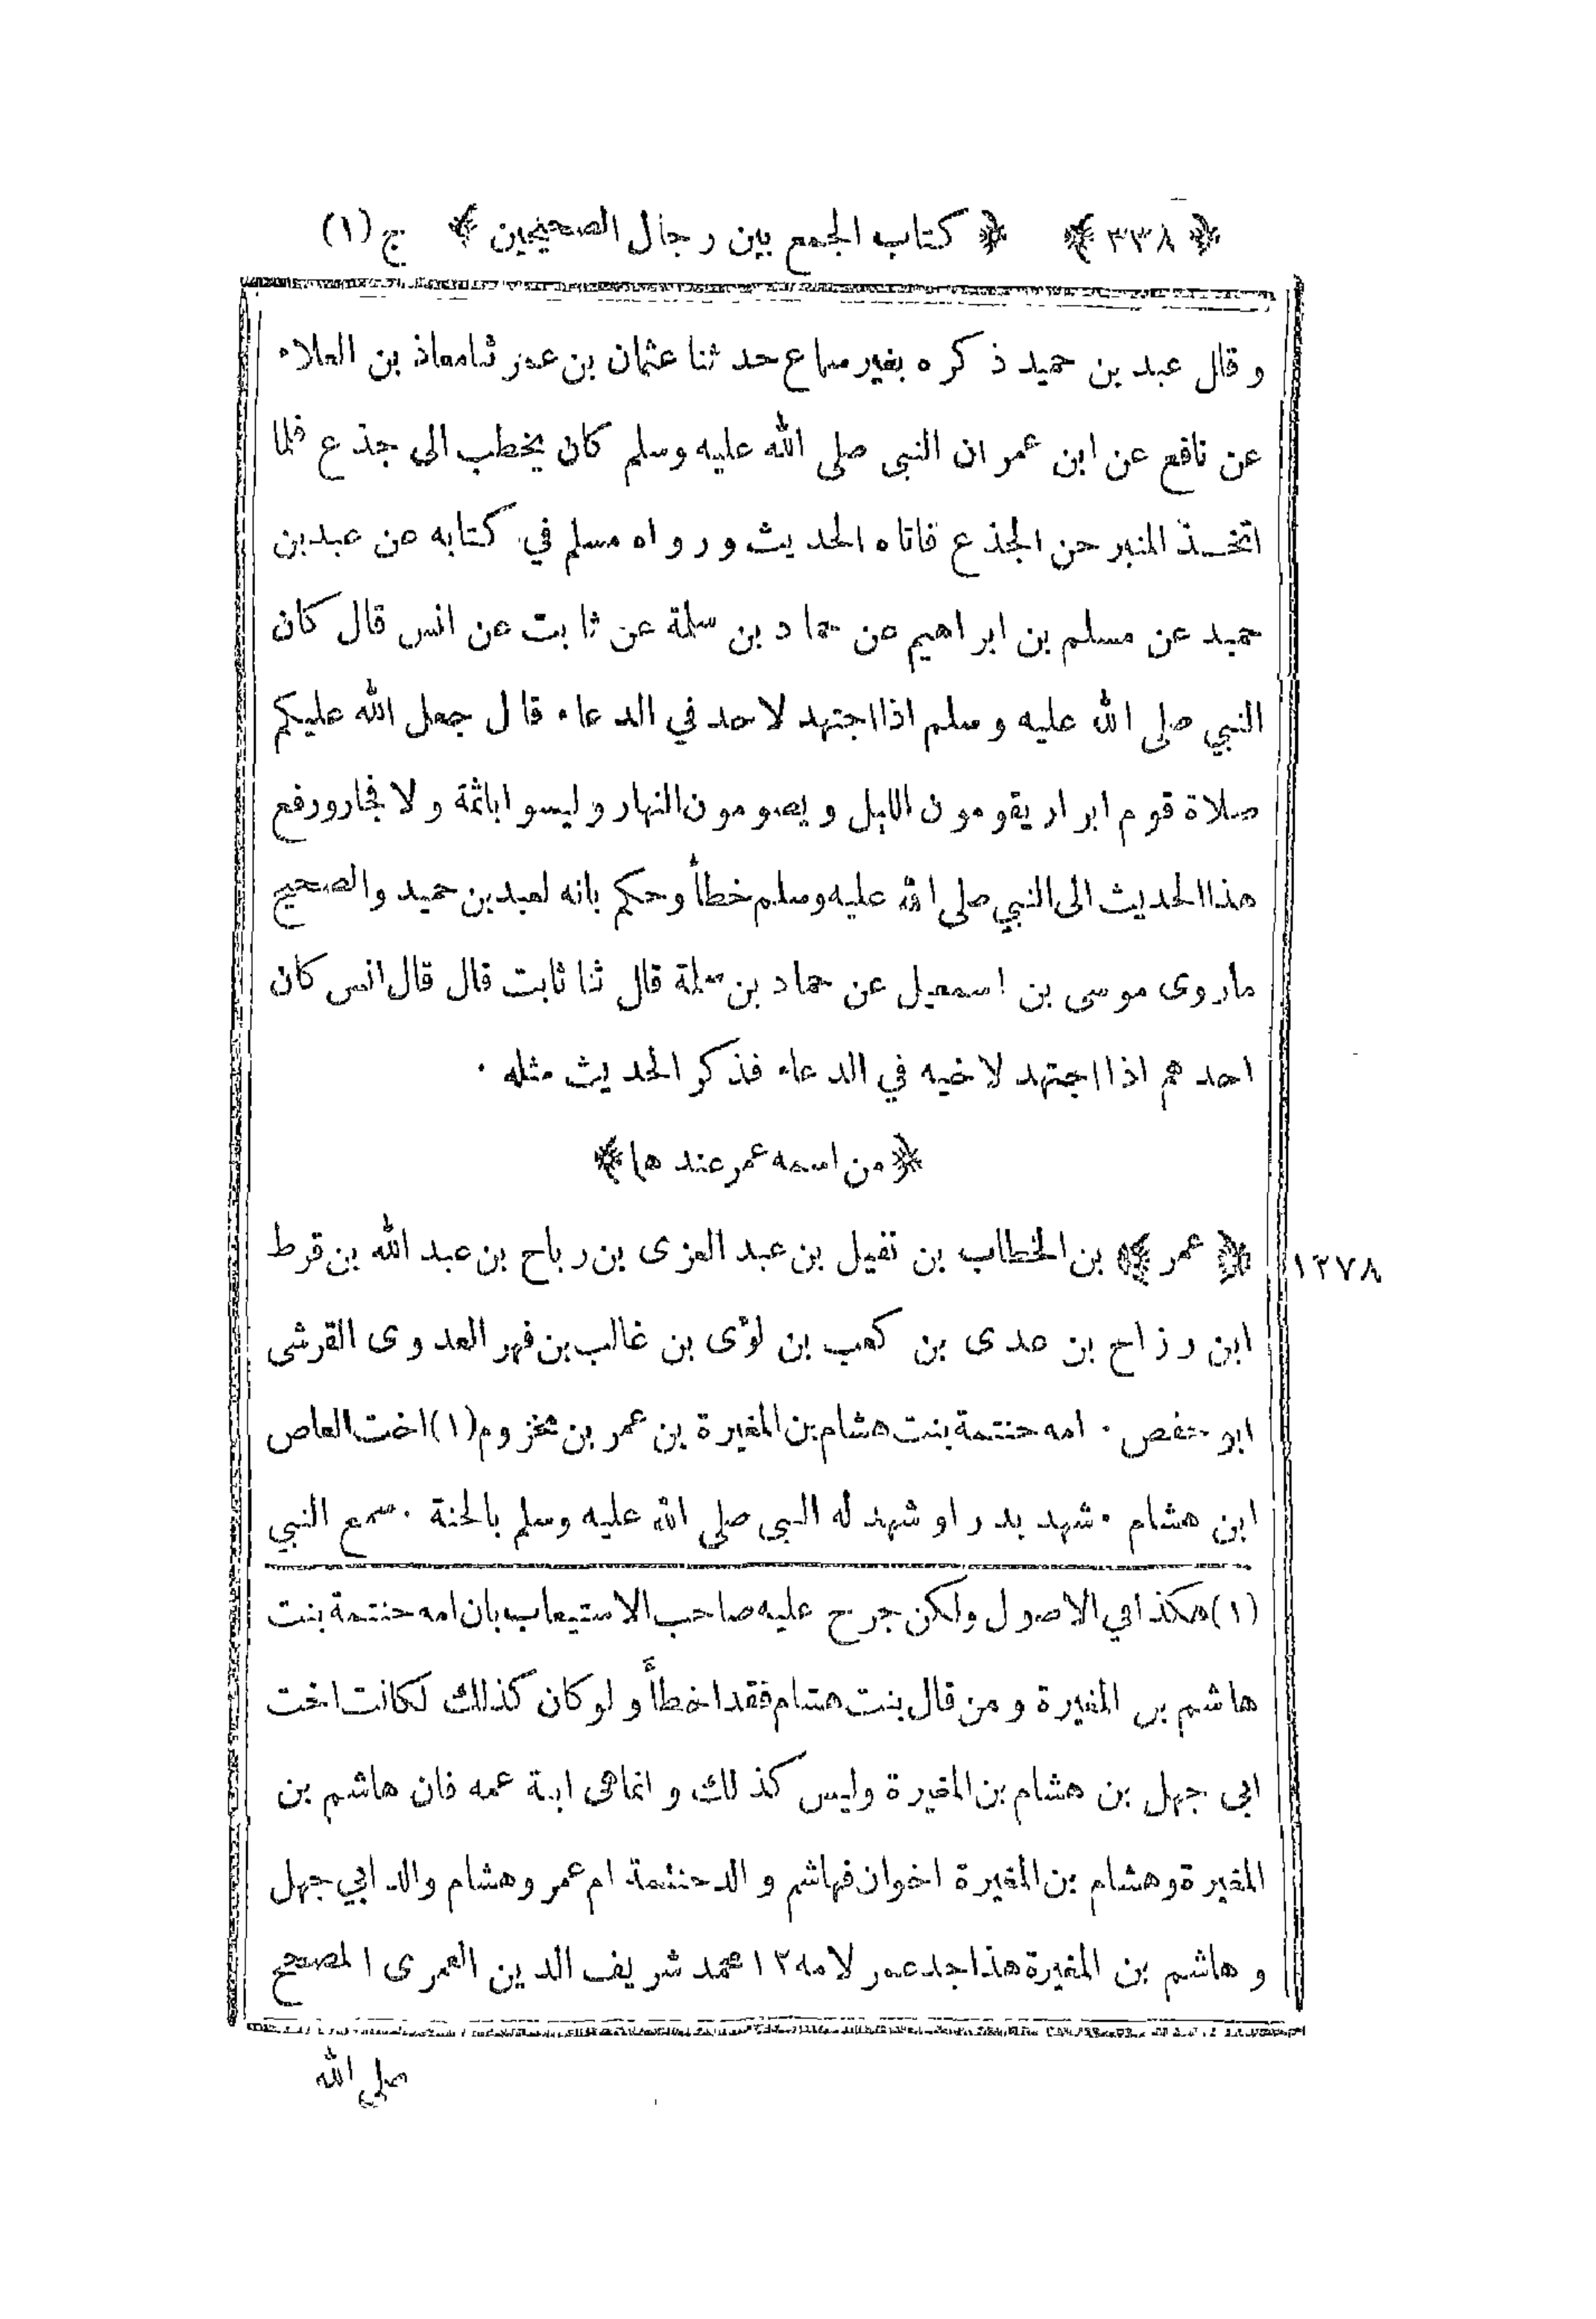 ﴿ ٣٣٨ ﴾ ﴿ كتاب الجمع بين رجال الصحيحين ﴾ ج (١)
و قال عبد بن حميد ذكره بغير سماع حدثنا عثمان بن عمر ثنا معاذ بن العلاء
عن نافع عن ابن عمر ان النبى صلى الله عليه وسلم كان يخطب الى جذع فلما
اتخذ المنبر حن الجذع فاتاه الحديث ورواه مسلم في كتابه عن عبد بن
حميد عن مسلم بن ابراهيم عن حماد بن سلمة عن ثابت عن انس قال كان
النبي صلى الله عليه وسلم اذا اجتهد لاحد في الدعاء قال جعل الله عليكم
صلاة قوم ابرار يقومون الليل ويصومون النهار وليسوا باثمة ولا فجار ورفع
هذا الحديث الى النبي صلى الله عليه وسلم خطأ وحكم بانه لعبد بن حميد والصحيح
ماروى موسى بن اسمعيل عن حماد بن سلمة قال ثنا ثابت قال قال انس كان
احدهم اذا اجتهد لاخيه في الدعاء فذكر الحديث مثله ٠
﴿ من اسمه عمر عندها ﴾
١٢٧٨ ﴿ عمر ﴾ بن الخطاب بن نفيل بن عبد العزى بن رباح بن عبد الله بن قرط
ابن رزاح بن عدى بن كعب بن لؤى بن غالب بن فهر العدوى القرشى
ابو حفص ٠ امه حنتمة بنت هشام بن المغيرة بن عمر بن مخزوم (١) اخت العاص
ابن هشام ٠ شهد بدرا وشهد له النبى صلى الله عليه وسلم بالجنة ٠ سمع النبي
(١) هكذا في الاصول ولكن جرح عليه صاحب الاستيعاب بان امه حنتمة بنت
هاشم بن المغيرة ومن قال بنت هشام فقد اخطأ ولو كان كذلك لكانت اخت
ابى جهل بن هشام بن المغيرة وليس كذلك وانما هى ابنة عمه فان هاشم بن
المغيرة وهشام بن المغيرة اخوان فهاشم والد حنتمة ام عمر وهشام والد ابي جهل
و هاشم بن المغيرة هذا جد عمر لامه ١٢ محمد شريف الدين العمرى المصحح
صلى الله